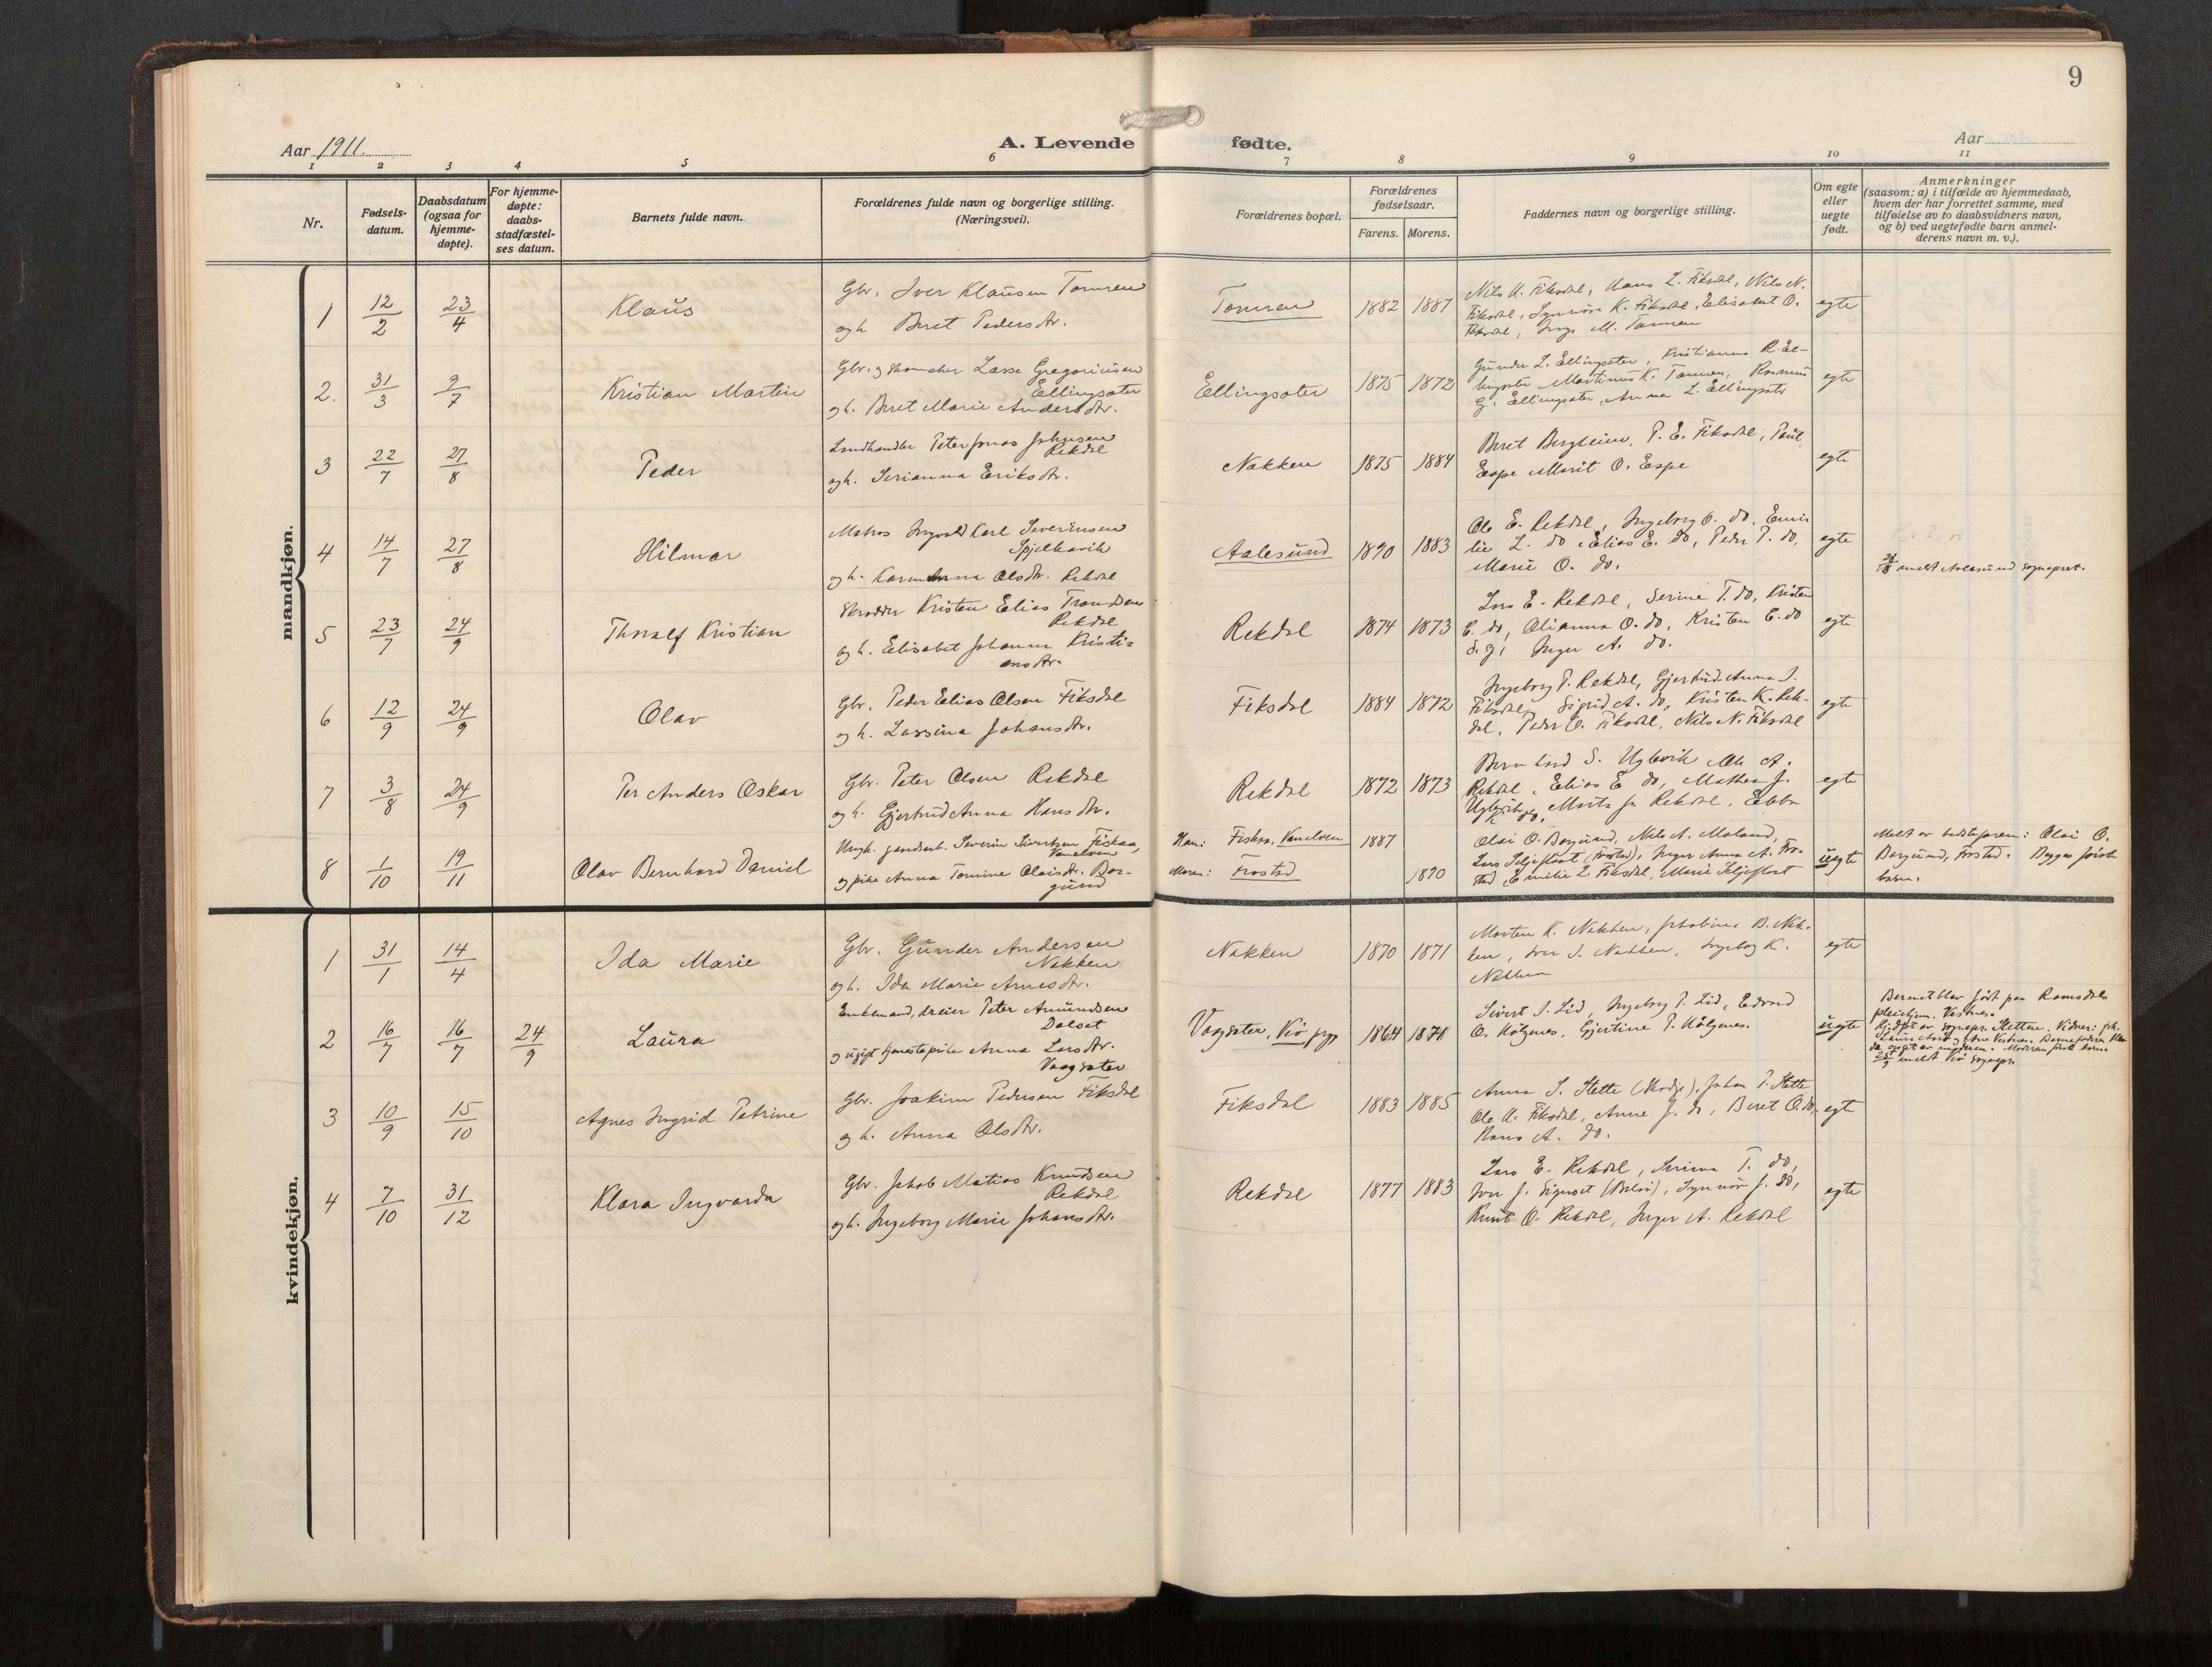 9
Aar 1911.
A. Levende fødte.
Aar
1 2 3 4 5 6 7 8 9 10 11
Nr.
Fødsels-
datum.
Daabsdatum
(ogsaa for
hjemme-
døpte).
For hjemme-
døpte:
daabs-
stadfæstel-
ses datum.
Barnets fulde navn.
Forældrenes fulde navn og borgerlige stilling.
(Næringsvei).
Forældrenes bopæl.
Forældrenes
fødselsaar.
Farens. Morens.
Faddernes navn og borgerlige stilling.
Om egte
eller
uegte
født.
Anmerkninger
(saasom: a) i tilfælde av hjemmedaab,
hvem der har forrettet samme, med
tilføielse av to daabsvidners navn,
og b) ved uegtefødte barn anmel-
derens navn m. v.).
mandkjøn.
1 12/2 23/4 Klaus
Gbr. Iver Klausen Tomren
og h. Beret Pedersdtr.
Tomren 1882 1887
Nils A. Fiksdal, Hans L. Fiksdal, Nils N.
Fiksdal, Synnøve K. Fiksdal, Elisabet O.
Fiksdal, M. Tomren
egte
2. 31/3 9/7 Kristian Martin
Gbr. og Lasse Gregoriusen
Ellingsæter
og h. Beret Marie Andersdtr.
Ellingsæter 1875 1872
Gunder L. Ellingsæter, Kristianna R. El-
lingsæter Martinus K. Tomren, Rasmus
G. Ellingsæter, Anna L. Ellingsæter
egte
3 22/7 27/8 Peder
Landhandler Peter Jonas Johnsen
Rekdal
og h. Serianna Eriksdtr.
Nakken 1875 1884
Beret Bergheim, P. E. Fiksdal, Paul
Espe Marit O. Espe
egte
4 14/7 27/8 Hilmar
Matros Ingvald Karl Severinsen
Spjelkavik
og h. Karen Anna Olsdtr. Rekdal
Aalesund 1890 1883
Ole E. Rekdal, Ingeborg O. do, Emi-
lie L. do Elias E. do, Peder P. do,
Marie O. do.
egte
meldt Aalesund sognepret.
5 23/7 24/9 Thoralf Kristian
Skrædder Kristen Elias Trondsen
Rekdal
og h. Elisabet Johanna Kristi-
ansdtr.
Rekdal 1874 1873
Lars E. Rekdal, Serine T. do, Kristen
E. do, Olianna O. do, Kristen E. do
Inger A. do.
egte
6 12/9 24/9 Olav
Gbr. Peder Elias Olsen Fiksdal
og h. Lassina Johansdtr.
Fiksdal 1884 1872
Ingeborg P. Rekdal, Gjertrud Anna J.
Fiksdal, Sigrid A. do, Kristen K. Rek-
dal, Peder O. Fiksdal, Nils N. Fiksdal
egte
7 3/8 24/9 Per Anders Oskar
Gbr. Peter Olsen Rekdal
og h. Gjertrud Anna Hansdtr.
Rekdal 1872 1873
Bernhard S. Uglevik Ole A.
Rekdal, Elias E do, Mathea J.
Uglevik, Marta J. Rekdal, Ebba
K do.
egte
8 1/10 19/11 Olav Bernhard Daniel
Ungk. jordarb. Severin Sivertsen Fiskaa,
Vanelven
og pike Anna Tomine Olaisdtr. Bor-
gund
Han: Fiskaa, Vanelven 1887
Moren: Frostad 1890
Olai O. Borgund, Nils A. Moland,
Lars Skjeflot (Frostad), Inger Anna A. Fro-
stad, Emilie L. Fiksdal, Marie Skjeflot
uegte
Meldt av bedstefaren: Olai O.
Borgund, Frostad. Begges første
barn.
kvindekjøn.
1 31/1 14/4 Ida Marie
Gbr. Gunder Andersen
Nakken
og h. Ida Marie Arnesdtr.
Nakken 1870 1871
Morten K. Nakken, Jakobine B. Nak-
ken, Iver I. Nakken, Ingeborg K.
Nakken
egte
2 16/7 16/7 24/9 Laura
Enkemand, dreier Peter Amundsen
Dalset
og ugift tjenestepike Anna Larsdtr.
Vaagsæter
Vaagsæter, Vø prgj 1864 1871
Sivert I. Lid, Ingeborg P. Lid, Edvard
O. Helgenes, Gjertine P. Helgenes.
uegte
Barnet blev født paa Romsdals
pleiehjem. Vestnes.
Hjdøpt av sognepr. Sletten. Vidner:
meldt Vø sognepr.
3 10/9 15/10 Agnes Ingrid Petrine
Gbr. Joakim Pedersen Fiksdal
og h. Anna Olsdtr.
Fiksdal 1883 1885
Anna S. Stette (Skodje), Johan P. Stette
Ole A. Fiksdal, Anne J. do, Beret O. do,
Hans A. do.
egte
4 7/10 31/12 Klara Ingvarda
Gbr. Jakob Matias Knudsen
Rekdal
og h. Ingeborg Marie Johansdtr.
Rekdal 1877 1883
Lars E. Rekdal, Serina T. do,
Iver J. Signset (Bolsø), Synnøv J. do,
Knut O. Rekdal, Inger A. Rekdal
egte